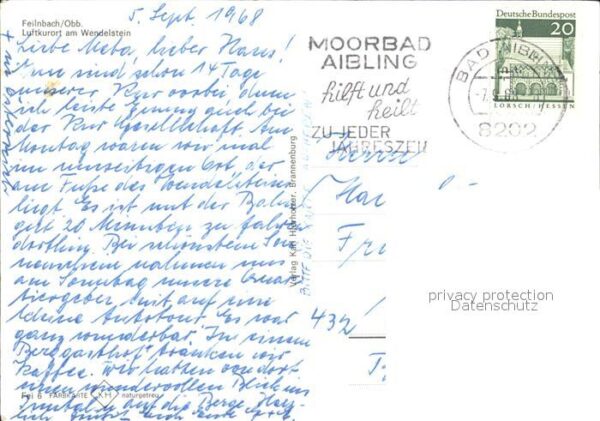 Feilnbach/Obb.
Luftkurort am Wendelstein
5. Sept. 1968
Liebe Meta, lieber Hans!
sind schon 14 Tage
unserer Kur vorbei denn
ich leiste Emmy auch bei
der Kur Gesellschaft. Am
Montag waren wir mal
im hiesigen Ort, der
am Fuße des Wendelsteins
liegt. Es ist mit der Bahn
gut 20 Minuten zu fahren
dorthin. Bei schönstem Son
nenschein nahmen uns
am Sonntag unsere Quar
tiergeber mit auf eine
kleine Autotour. Es war
ganz wunderbar. In einem
Berggasthof tranken wir
Kaffee. Wir hatten von dort
einen wundervollen Blick ins
Inntal u. auf die Berge. Herz-
lich
Fei 6 FARBKARTE KH naturgetreu
Verlag Karl Hornhofer, Brannenburg
MOORBAD
AIBLING
hilft und
heilt
ZU JEDER
JAHRESZEIT
BAD AIBLING
8202
Deutsche Bundespost
20
LORSCH/HESSEN
Herrn
Ha
Fr
432
privacy protection
Datenschutz